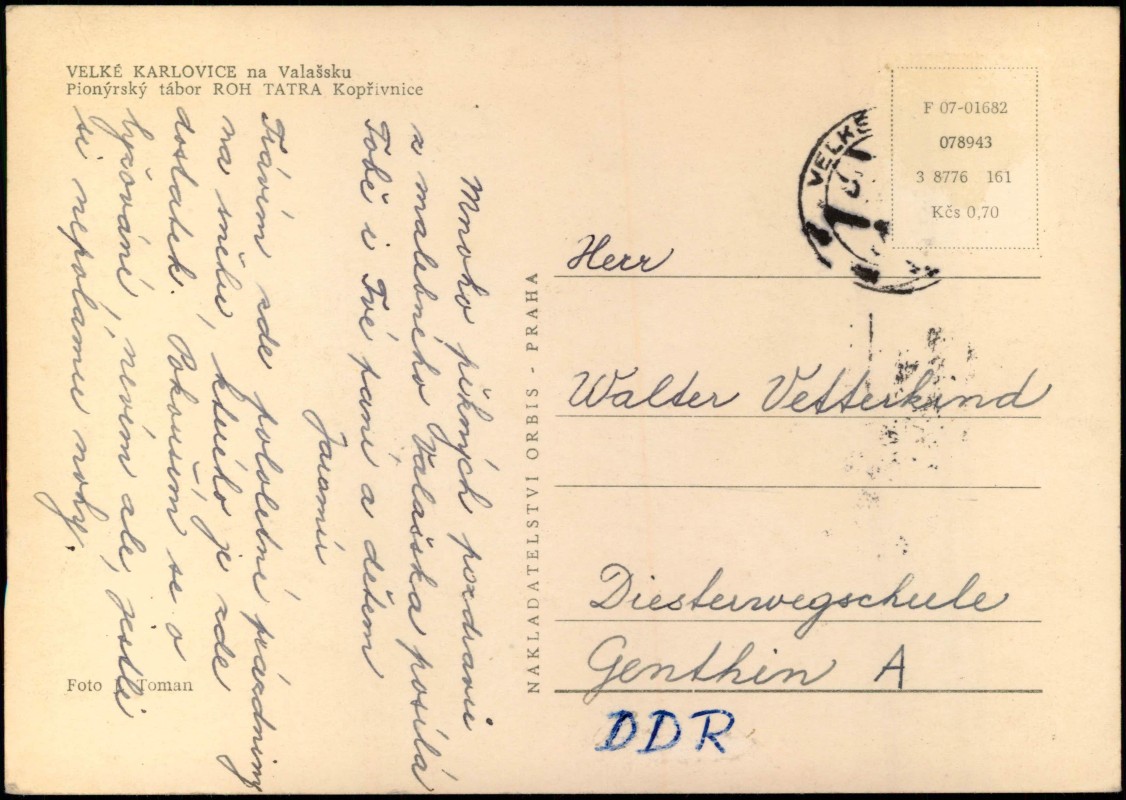 VELKÉ KARLOVICE na Valašsku
Pionýrský tábor ROH TATRA Kopřivnice
Mnoho pěkných pozdravů
z malebného Valašska posílá
Tobě i Tvé paní a dětem
Jaromír
Trávím zde pololetní prázdniny
na sněhu, kterého je zde
dostatek. Pokouším se o
lyžování, nevím ale, jestli
si nepolámu nohy.
Foto Toman
NAKLADATELSTVÍ ORBIS - PRAHA
VELKÉ
F 07-01682
078943
3 8776 161
Kčs 0,70
Herr
Walter Vetterkind
Diesterwegschule
Genthin A
DDR